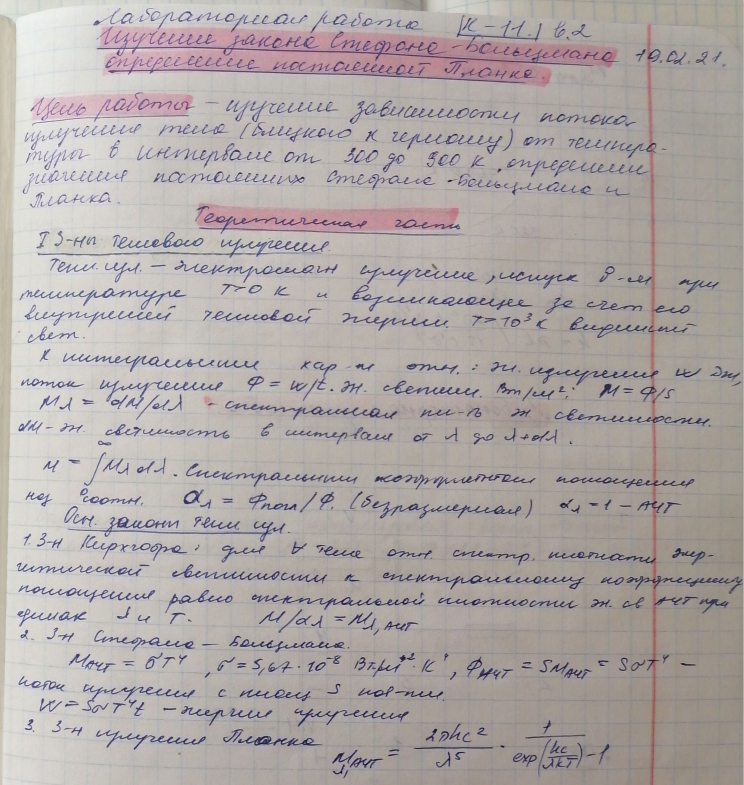 Лабораторная работа К-11.1 в.2
Изучение закона Стефана-Больцмана 19.02.21.
определение постоянной Планка.
Цель работы – изучение зависимости потока
излучения тела (близкого к черному) от темпера-
туры в интервале от 300 до 900 К, определении
значения постоянных Стефана-Больцмана и
Планка.
Теоретическая часть
I З-ны теплового излучения.
Тепл. изл. – электромагн излучение, испуск при
температуре T>0 К и возникающее за счет его
внутренней тепловой энергии. T>10³К видимый
свет.
К интегральным хар-м отн.: эн. излучения W Дж,
поток излучения Ф = W/t. эн. светим. Вт/м²; M = Ф/S
Mλ = dM/dλ – спектральная пл-ть эн светимости.
dM – эн. светимость в интервале от λ до λ+dλ.
M = ∫₀^∞ Mλ dλ. Спектральным коэффициентом поглощения
наз соотн. αλ = Фпогл/Ф. (безразмерная) αλ = 1 – АЧТ
Осн. законы тепл изл.
1. З-н Кирхгофа: для ∀ тела отн. спектр. плотности энер-
гетической светимости к спектральному коэффициенту
поглощения равно спектральной плотности эн. св АЧТ при
одинак λ и T. M/αλ = Mλ,АЧТ
2. З-н Стефана – Больцмана.
MАЧТ = σT⁴, σ = 5,67·10⁻⁸ Вт·м⁻²·К⁻⁴, ФАЧТ = SMАЧТ = SσT⁴ –
поток излучения с площ S пов-ти.
W = SσT⁴t – энергия излучения
3. З-н излучения Планка Mλ,АЧТ = 2πhc²/λ⁵ · 1/(exp(hc/λkT)-1)